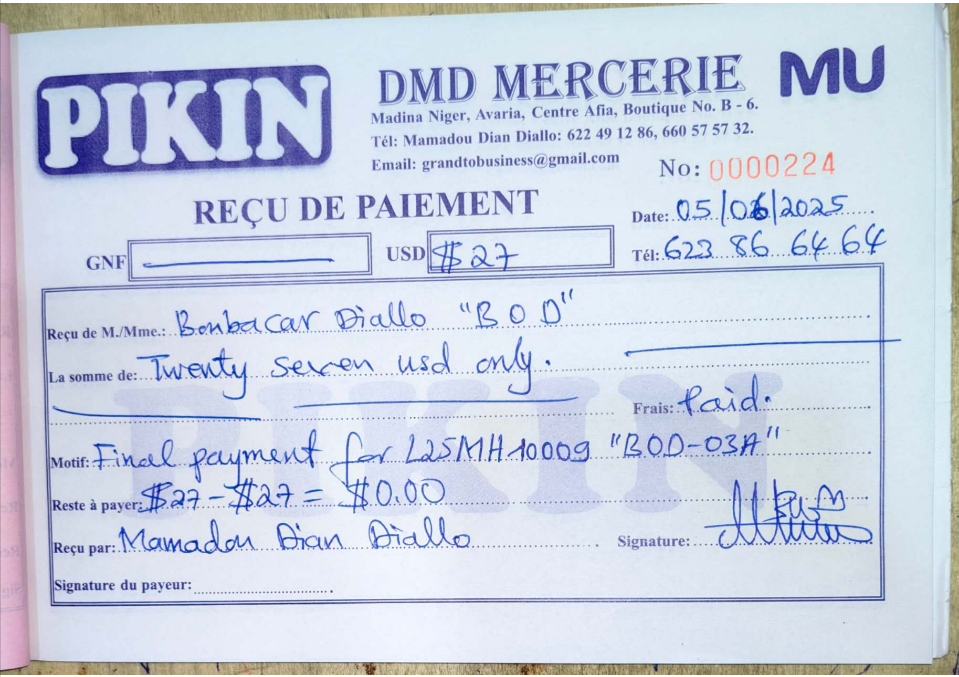 PIKIN
DMD MERCERIE MU
Madina Niger, Avaria, Centre Afia, Boutique No. B - 6.
Tél: Mamadou Dian Diallo: 622 49 12 86, 660 57 57 32.
Email: grandtobusiness@gmail.com
No: 0000224
REÇU DE PAIEMENT
Date: 05/06/2025
GNF USD $27
Tél: 623 86 64 64
Reçu de M./Mme.: Bonbacar Diallo "BOD"
La somme de: Twenty seven usd only.
Frais: Paid.
Motif: Final payment for L25MH10009 "BOD-03A"
Reste à payer: $27-$27 = $0.00
Reçu par: Mamadou Dian Diallo Signature:
Signature du payeur:
PIKIN